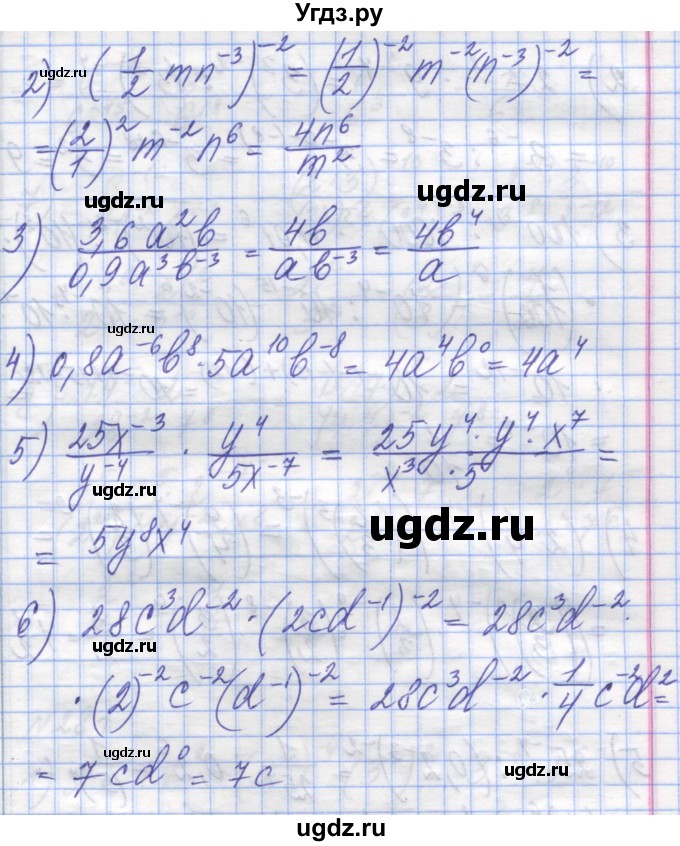 Угдз.ру
2) (1/2 mn⁻³)⁻² = (1/2)⁻² m⁻² (n⁻³)⁻² =
ugdz.ru
= (2/1)² m⁻² n⁶ = 4n⁶/m²
ugdz.ru
ugdz.ru
3) 3,6a²b/0,9a³b⁻³ = 4b/ab⁻³ = 4b⁴/a
ugdz.ru
ugdz.ru
4) 0,8a⁻⁶b⁸ · 5a¹⁰b⁻⁸ = 4a⁴b⁰ = 4a⁴
5) 25x⁻³/y⁻⁴ · y⁴/5x⁻⁷ = 25y⁴ · y⁴ · x⁷/x³ · 5 =
ugdz.ru
ugdz.ru
= 5y⁸x⁴
6) 28c³d⁻² · (2cd⁻¹)⁻² = 28c³d⁻² ·
ugdz.ru
· (2)⁻² c⁻² (d⁻¹)⁻² = 28c³d⁻² · 1/4 c⁻²d² =
ugdz.ru
ugdz.ru
= 7cd⁰ = 7c
ugdz.ru
ugdz.ru